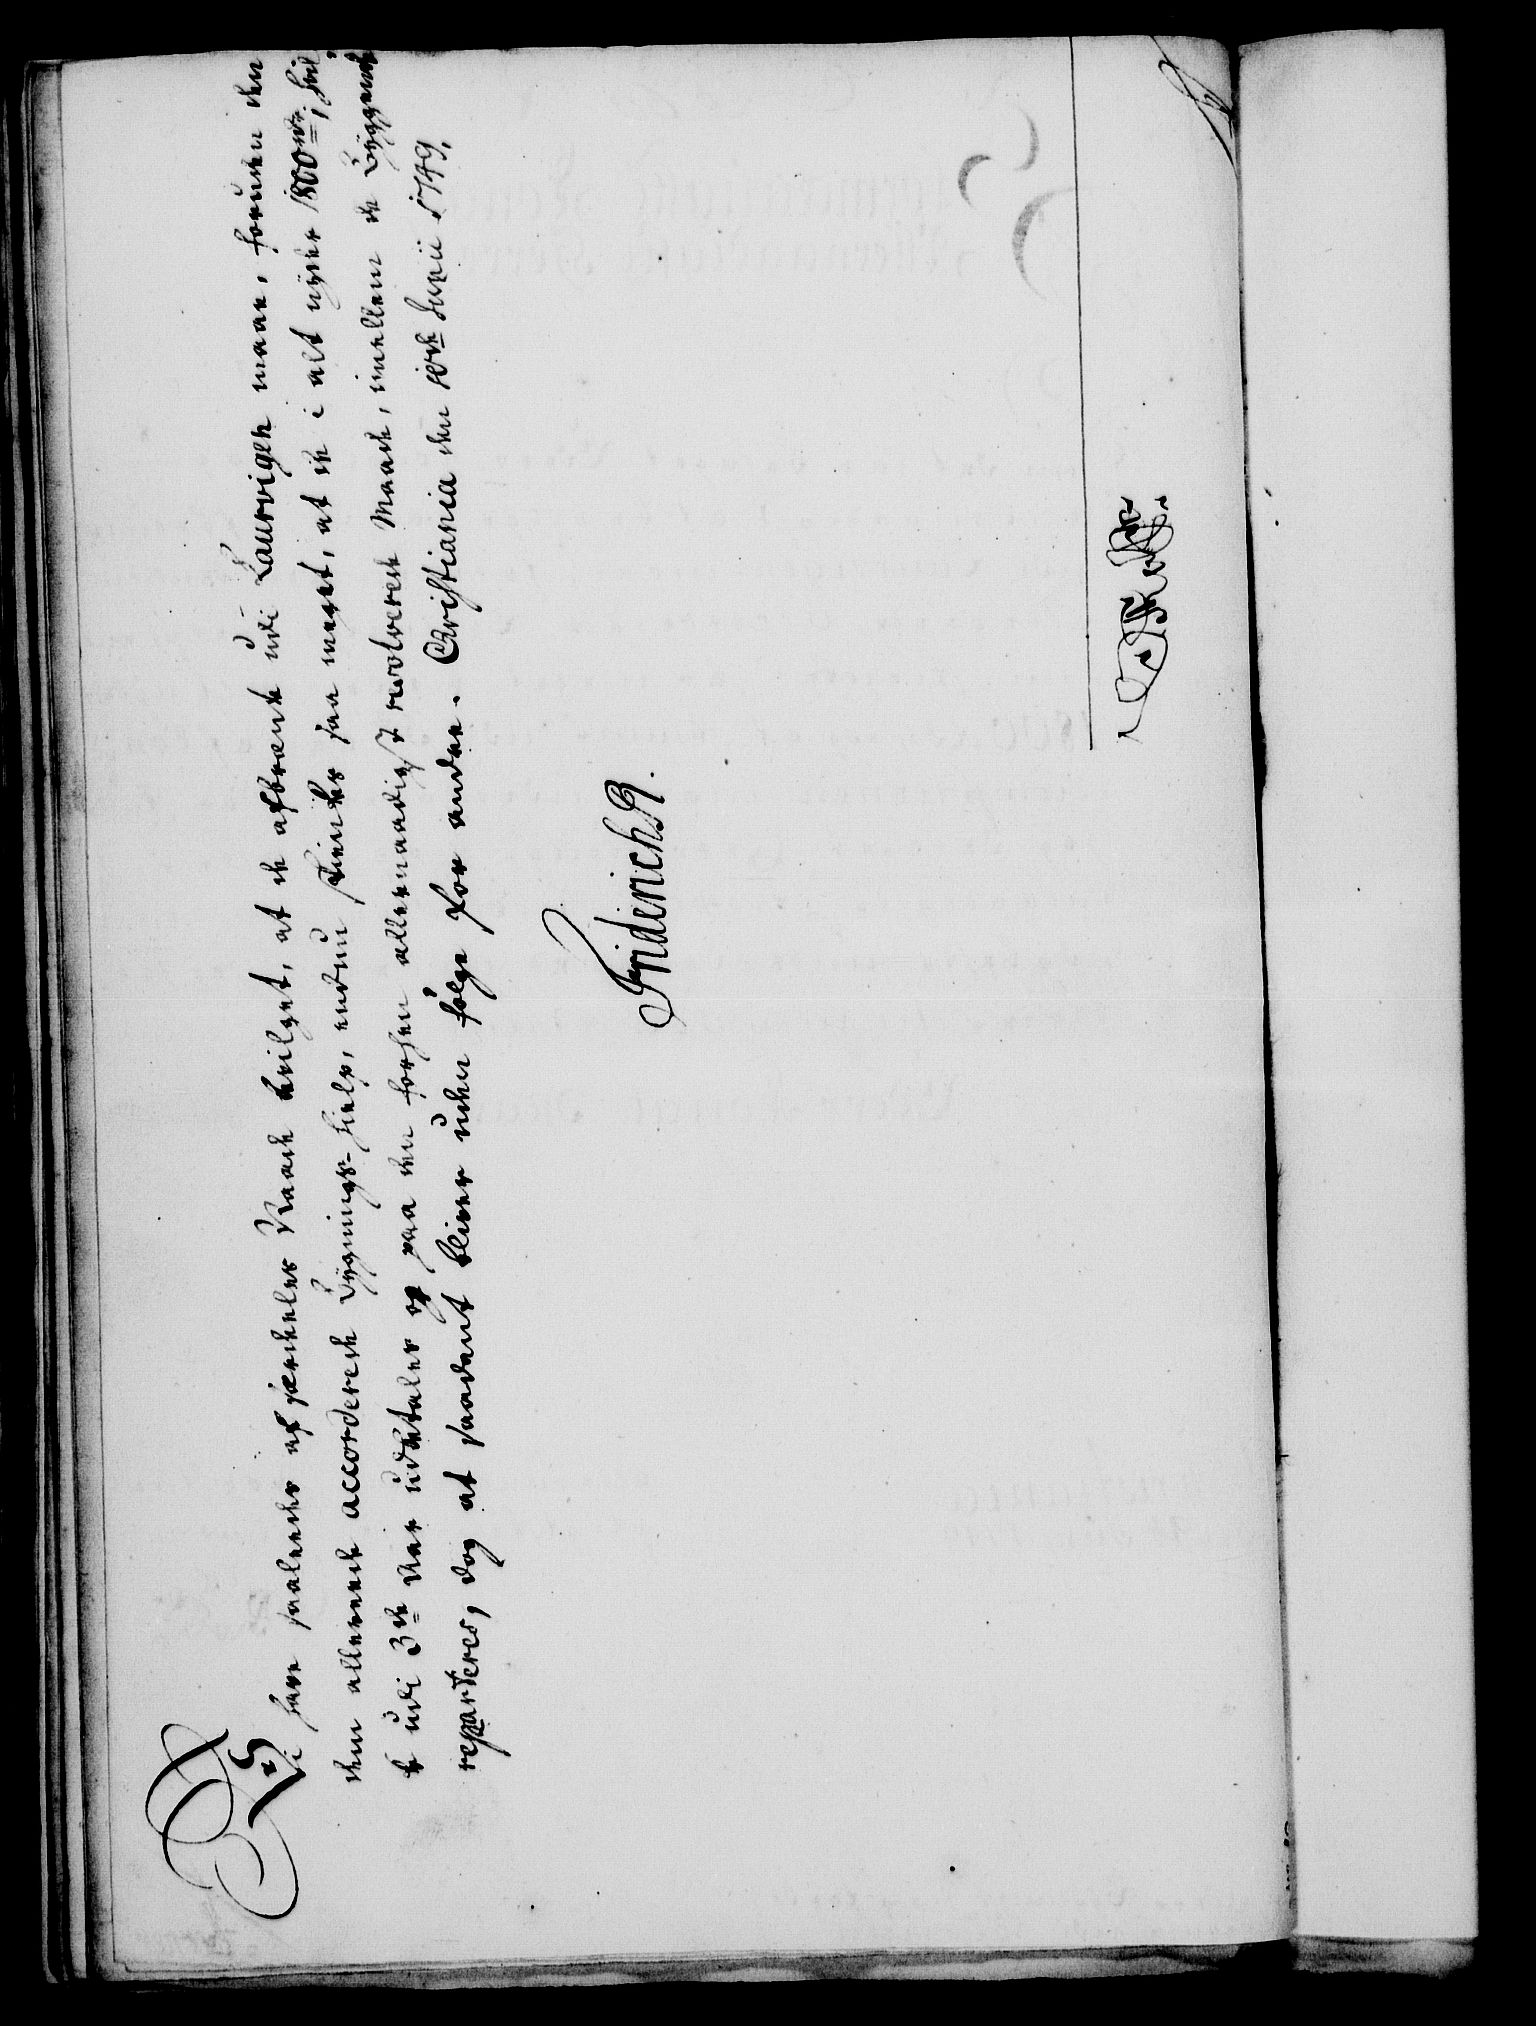 Vi have saaledes af særdeles Naade bevilget, at de afbrændte udi Laurvigen maae, foruden den
dem allereede accorderede Bygnings-hielp, endnu skienkes saa meget, at de i alt nyder 1800 rdr., hvil-
ke udi 3de Aar udbetales og paa den forhen allernaadigst resolverede Maade, imellem de Byggende
reparteres, dog at saadant bliver uden følge for andre. Christiania den 10de Junii 1749.
Friderich R.